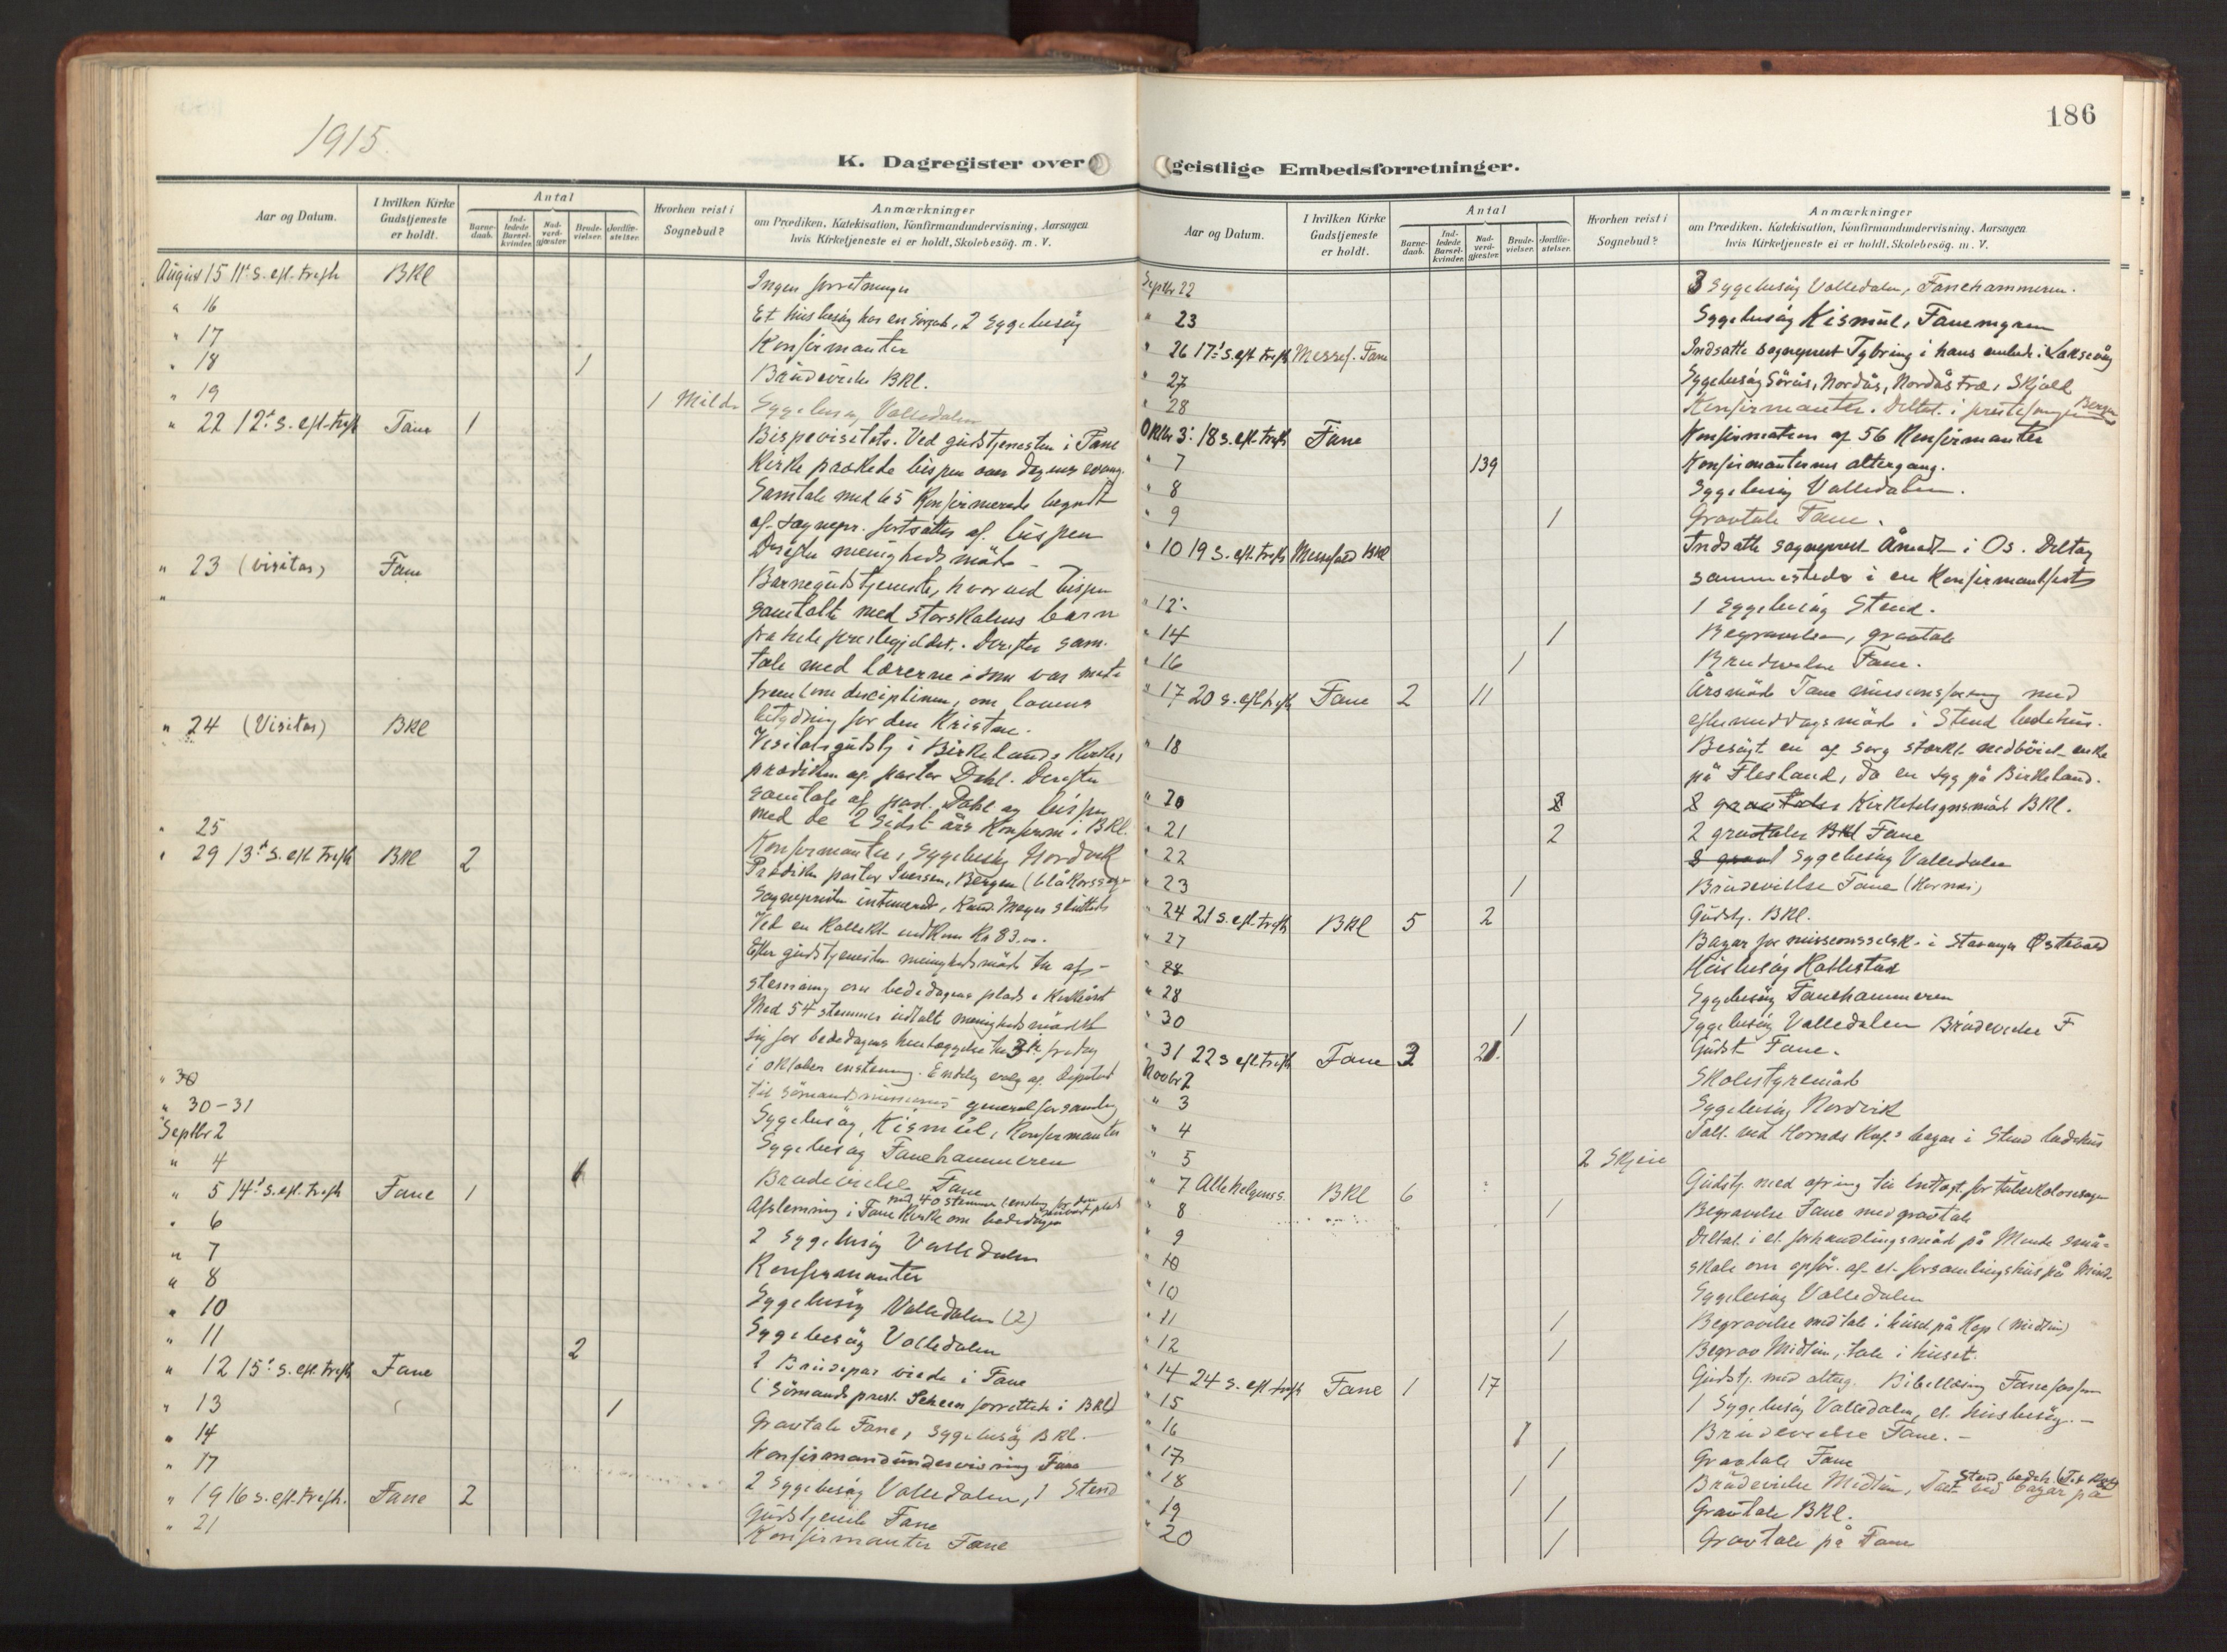 1915.
K. Dagregister over
Aar og Datum.
I hvilken Kirke Gudstjeneste er holdt.
Antal
Barnedaab.
Indledede Barselkvinder.
Nadverdgjester
Brudevielser.
Jordfæstelser.
Hvorhen reist i Sognebud?
Anmærkninger
om Prædiken, Katekisation, Konfirmandundervisning, Aarsagen
hvis Kirketjeneste ei er holdt, Skolebesög. m. V.
August 15 11te s. eft. trefh BKl Ingen forretninger
" 16 Et husbesög hos en, 2 Sygebesög
" 17 Konfirmanter
" 18 1 Brudevielse BKl.
" 19 1 Milde Sygebesög Valledalen
" 22 12te s. eft. trefh Fane 1 Bispevisitats. Ved gudstjenesten i Fane
Kirke prækede bispen over dagens evang.
Samtale med 65 Konfirmerede begyndt
af sognepr. fortsattes af bispen
Derefter menighedsmöde
" 23 (visitas) Fane
" Barnegudstjeneste, hvorved bispen
samtalte med storskolens barn
fra hele prestegjeldet. Derefter sam-
tale med lærerne som var mött
frem om disciplinen, om lovens
betydning for den Kristne.
" 24 (Visitas) BKl Visitatsgudstj i Birkelands Kirke,
prædiken af pastor Dahl. Derefter
samtale af past. Dahl og bispen
med de 2 sidst års Konfirm i BKl.
" 25 Konfirmanter, Sygebesög Nordvik
" 29 13de s. eft. trefh BKl 2 Prædiken pastor Iversen, Bergen (blåkorssagen
Sognepresten intonerede, Kand. Meyer sluttede
Ved en Kollekt indkom Kr 83.00.
Efter gudstjenesten menighedsmöde til af-
stemning om bededagens plads i Kirkeåret
Med 54 stemmer udtalte menighedsmödet
sig for bededagens henlæggelse til 3de fredag
i oktober enstemmig. Endelig valg af
" 30 til sömandsmissionens generalforsamling
" 30-31 Sygebesög, Kismul, Konfirmanter
Septbr 2 Sygebesög Fanehammeren
" 4 1 Brudevielse Fane
" 5 14de s. eft. trefh Fane 1 Afstemning i Fane Kirke om bededagen
med 40 stemmer
" 6 2 Sygebesög Valledalen
" 7 Konfirmanter
" 8 Sygebesög Valledalen (2)
" 10 Sygebesög Valledalen
" 11 2 2 Brudepar viede i Fane
" 12 15de s. eft. trefh Fane (Sömandsprest Scheen forrettede i BKl)
" 13 1 Gravtale Fane, Sygebesög BKl.
" 14 Konfirmandundervisning Fane
" 17 2 Sygebesög Valledalen, 1 Stend
" 19 16 s. eft. trefh. Fane 2 Gudstjeneste Fane
" 21 Konfirmanter Fane
186
geistlige Embedsforretninger.
Aar og Datum.
I hvilken Kirke Gudstjeneste er holdt.
Antal
Barnedaab.
Indledede Barselkvinder.
Nadverdgjester
Brudevielser.
Jordfæstelser.
Hvorhen reist i Sognebud?
Anmærkninger
om Prædiken, Katekisation, Konfirmandundervisning, Aarsagen
hvis Kirketjeneste ei er holdt, Skolebesög. m. V.
Septbr 22 3 Sygebesög Valledalen, Fanehammeren.
" 23 Sygebesög Kismul, Fanemyren
" 26 17de s. eft trefh Messef. Fane Indsatte sogneprest Tybring i hans embede i Laksevåg
" 27 Sygebesög Sörås, Nordås, Nordåstræ, Skjold
" 28 Konfirmanter. Deltat i Bergen
Oktbr 3. 18 s. eft. trefh Fane Konfirmation af 56 Konfirmanter
" 7 139 Konfirmanternes altergang.
" 8 Sygebesög Valledalen.
" 9 1 Gravtale Fane.
" 10 19 s. eft. trefh Messefald BKl Indsatte sogneprest Åmodt i Os. Deltog
sammesteds i en Konfirmantfest
" 12. 1 Sygebesög Stend.
" 14 1 Begravelse, gravtale
" 16 1 Brudevielse Fane.
" 17 20 s. eft trefh Fane 2 11 Årsmöde Fane missionsforening med
eftermiddagsmöde i Stend bedehus.
" 18 Besögt en af sorg stærkt nedböiet enke
på Flesland, da en syg på Birkeland.
" 20 2 2 gravtaler Kirketilsynsmöde BKl.
" 21 2 2 gravtaler BKl Fane
" 22 Sygebesög Valledalen
" 23 1 Brudevielse Fane (Hornæs)
" 24 21 s. eft. trefh BKl 5 2 Gudstj. BKl.
" 27 Bazar for missionsselsk. i Stavanger Östevold
" 28 Husbesög Kallestad
" 28 Sygebesög Fanehammeren
" 30 1 Sygebesög Valledalen Brudevielse F
" 31 22 s eft trefh Fane 3 21. Gudst Fane.
Novbr 2 Skolestyremöde
" 3 Sygebesög Nordvik
" 4 Talt ved Hornæs bazar i Stend bedehus
" 5 2 Skjeie
" 7 Allehelgenss. BKl 6 Gudstj. med ofring til indtægt for tuberkulosesagen
" 8 1 Begravelse Fane med gravtale
" 9 Deltat i et forhandlingsmöde på Minde små-
" 10 skole om opför. af et forsamlingshus på Minde
" 10 Sygebesög Valledalen
" 11 1 Begravelse med tale i huset på Hop (Midtun)
" 12 1 Begrav Midtun, tale i huset.
" 14 24 s. eft trefh Fane 1 17 Gudstj. med alterg. Bibellæsning
" 15 1 Sygebesög Valledalen, et husbesög.
" 16 1 Brudevielse Fane.
" 17 1 Gravtale Fane
" 18 1 Brudevielse Midtun, Talt ved bazar på Stend bedeh
" 19 1 Gravtale BKl.
" 20 1 Gravtale på Fane